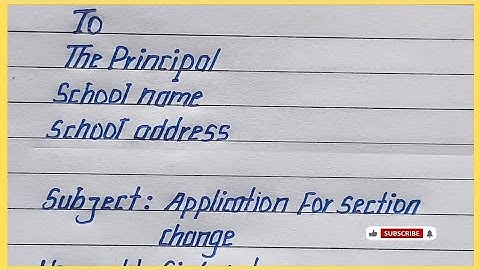 To
The Principal
School name
School address
Subject: Application For section
change
SUBSCRIBE